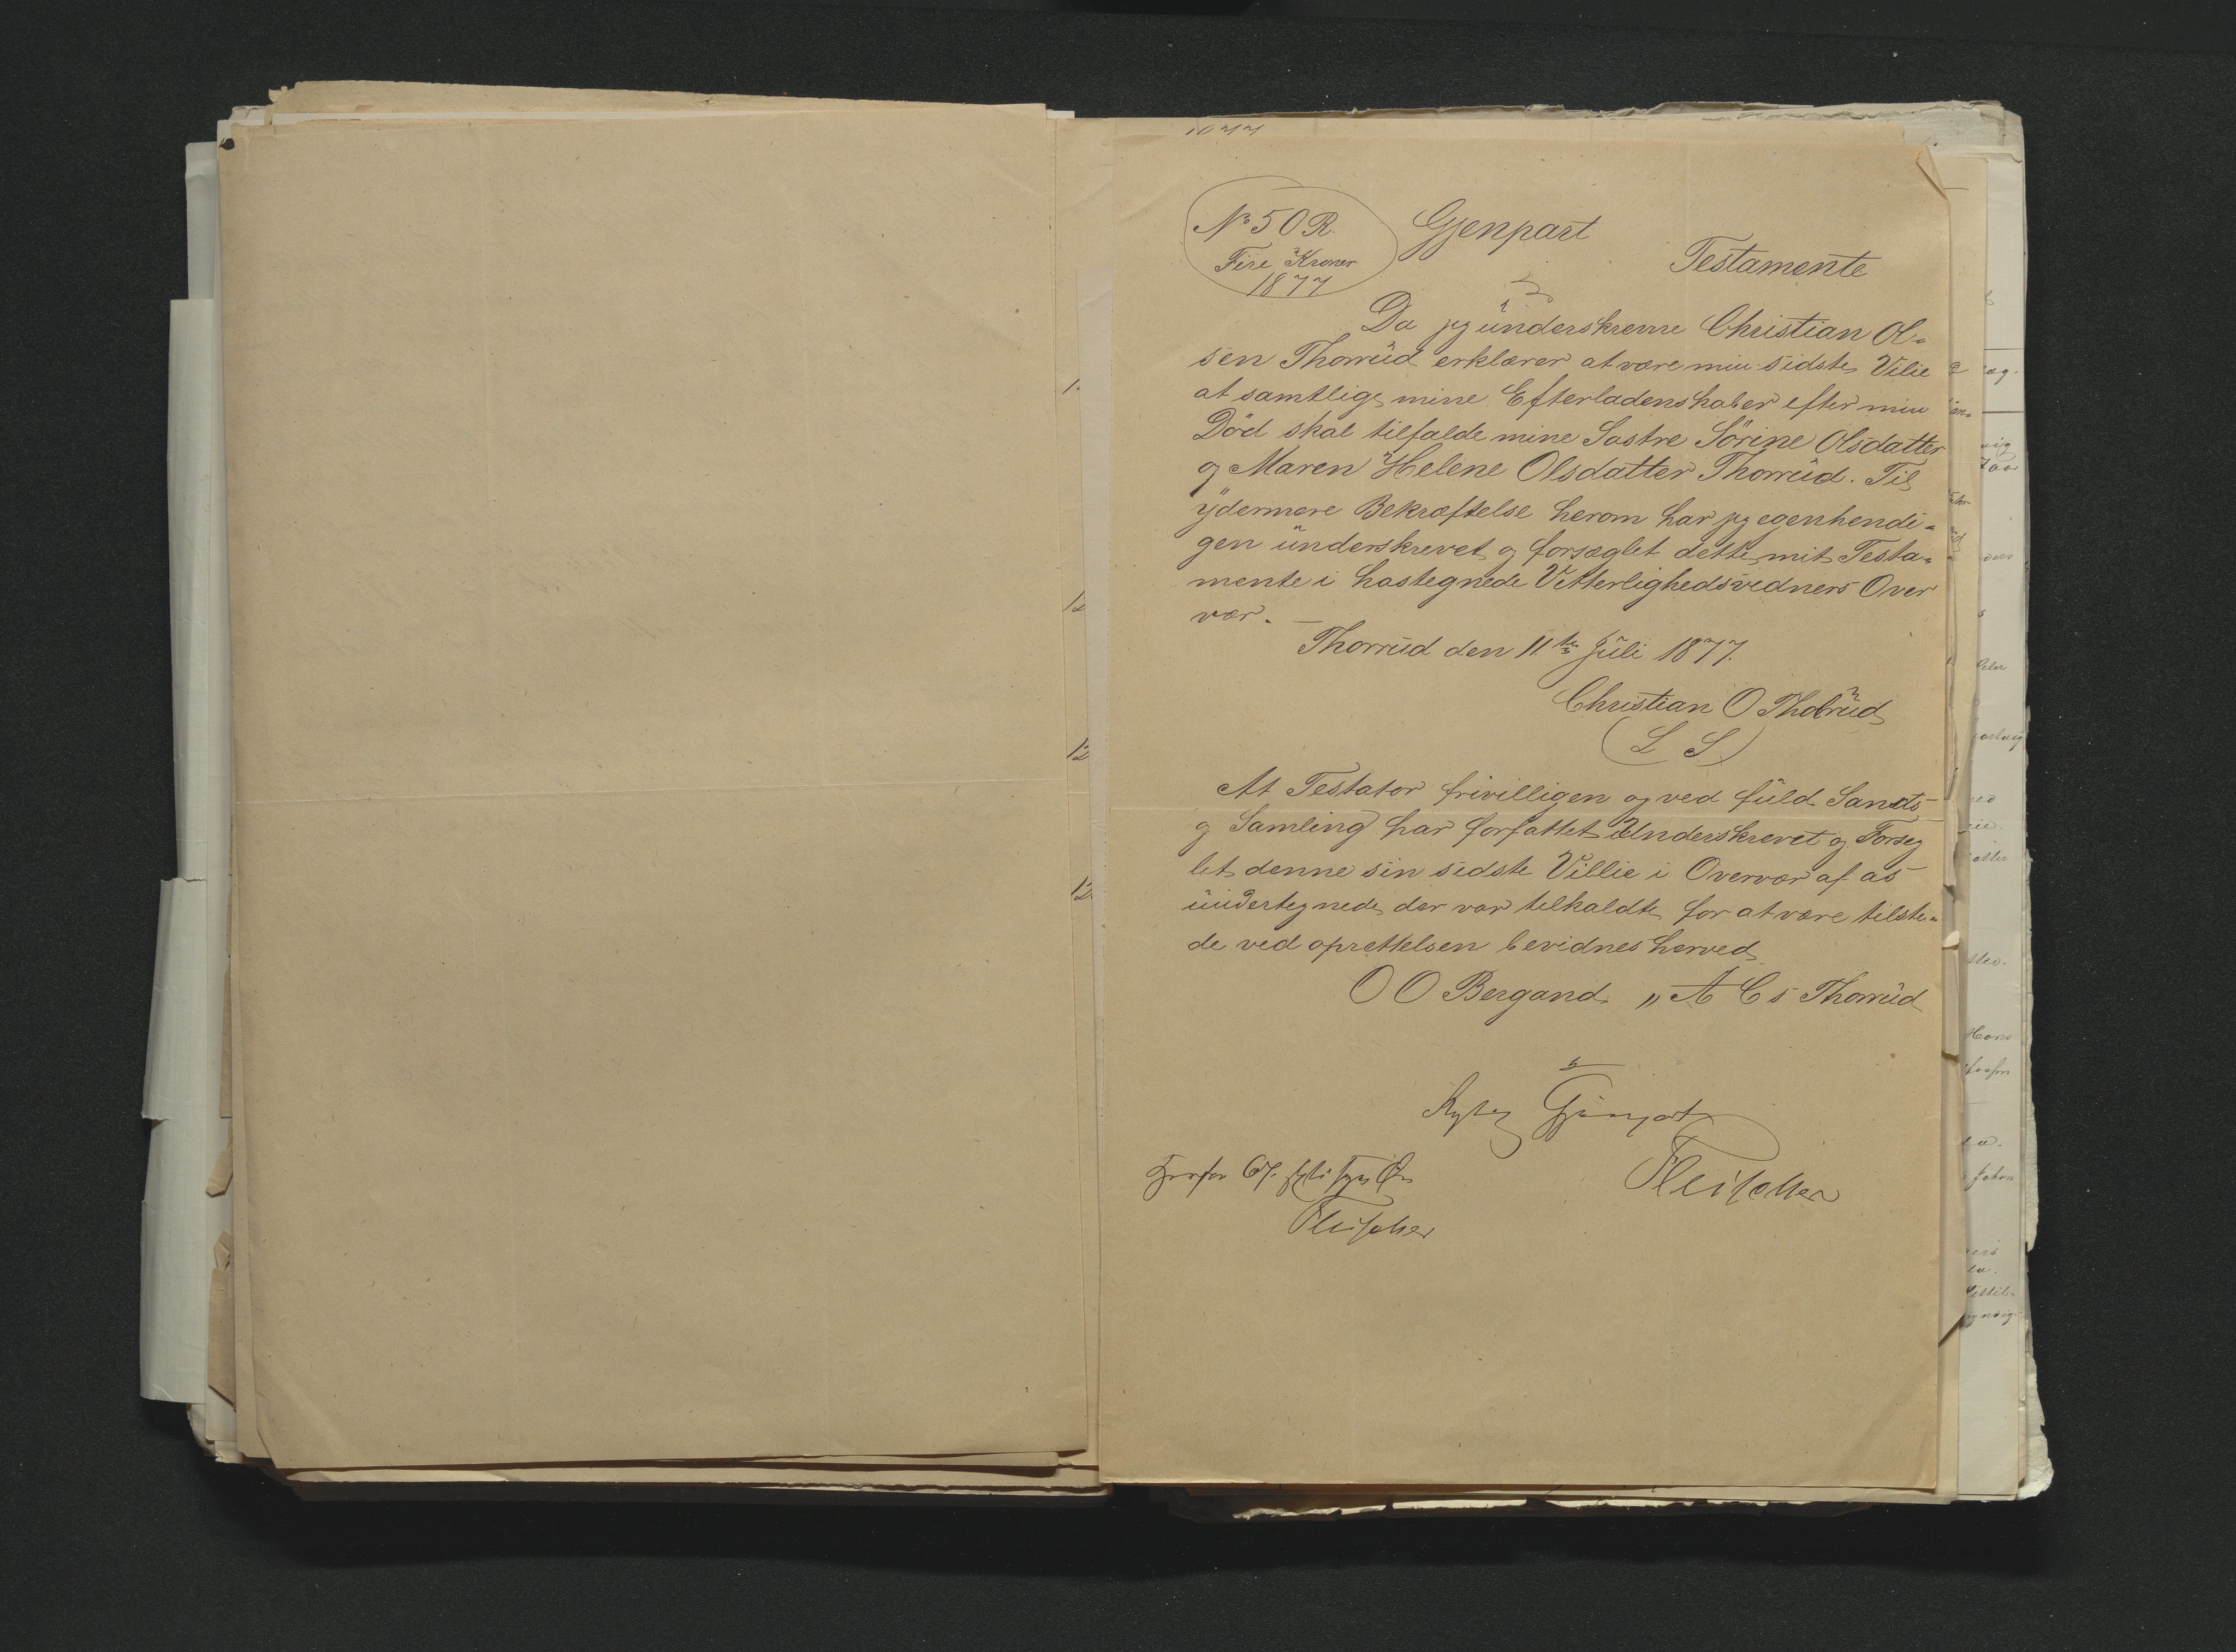 No 50 R.
Fire Kroner
1877
Gjenpart
Testamente
Da jeg ünderskrevne Christian Ol-
sen Thorrüd erklærer at være min sidste Vilie
at samtlige mine Efterladenskaber efter min
Död skal tilfalde mine Søstre Sörine Olsdatter
og Maren Helene Olsdatter Thorrüd. Til
ydermere Bekræftelse herom har jeg egenhendi-
gen ünderskrevet og forseglet dette mit Testa-
mente i hostegnede Vitterlighedsvidners Over
vær. —
Thorrüd den 11te Jüli 1877.
Christian O Thorrüd
(L S)
At Testator frivilligen og ved füld Sands
og Samling har forfattet Underskrevet og Forseg
let denne sin sidste Villie i Overvær af os
ündertegnede der var tilkaldte for at være tilste-
de ved oprettelsen bevidnes herved
O O Bergand " A Cs Thorrüd
Rigtig Gjenpart
Fleischer
Fleischer